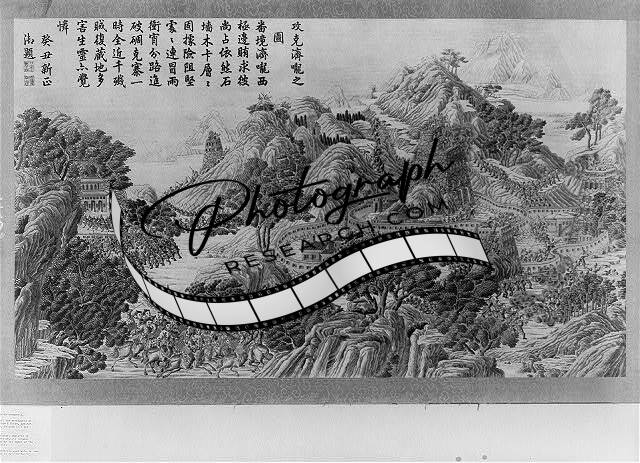 攻克濟嚨之
圖
畨境濟嚨西
極邊賄求彼
尚占依然石
墻木卡層〻
固據險阻堅
連冒雨
衝宵分路進
破碉克寨一
時全近千殲
賊復藏地多
害生靈亦覺
憐
癸丑新正
御題
Photograph
RESEARCH.COM